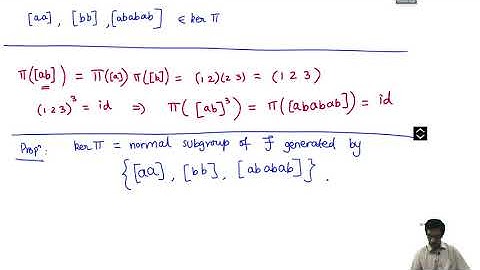 [aa], [bb], [ababab] ∈ ker π
π([ab]) = π([a]) π([b]) = (1 2)(2 3) = (1 2 3)
(1 2 3)³ = id ⇒ π([ab]³) = π([ababab]) = id
Propⁿ: ker π = normal subgroup of F generated by
{[aa], [bb], [ababab]}.